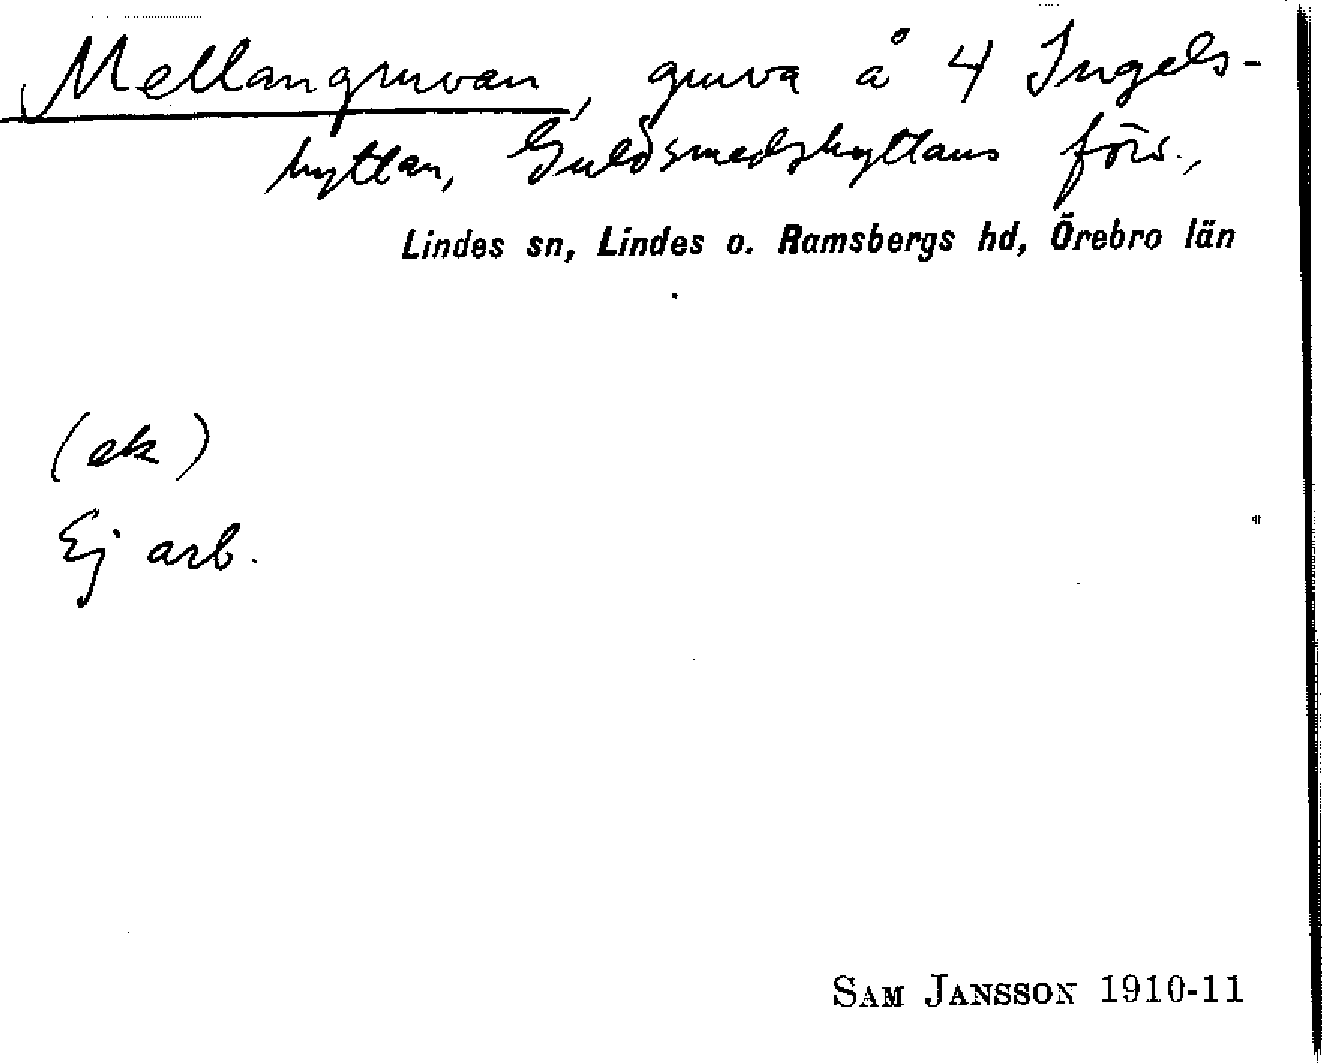 Mellangruvan, gruva å 4 Ingels-
hyttan, Guldsmedshyttans förs.,
Lindes sn, Lindes o. Ramsbergs hd, Örebro län
(ek)
Ej arb.
SAM JANSSON 1910-11